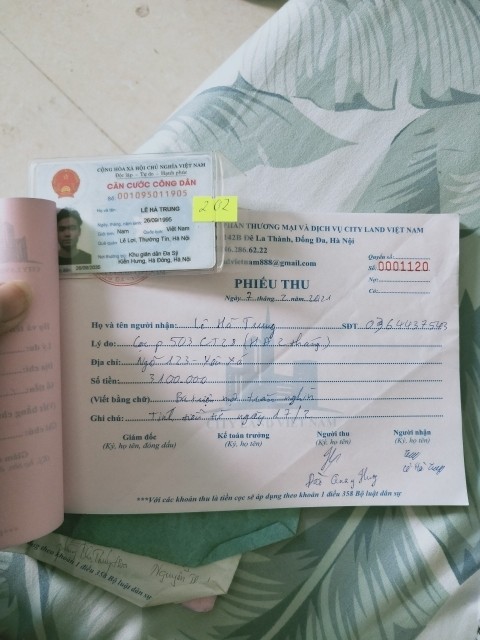 CỘNG HÒA XÃ HỘI CHỦ NGHĨA VIỆT NAM
Độc lập - Tự do - Hạnh phúc
CĂN CƯỚC CÔNG DÂN
Số 001095011905
Họ và tên:
LÊ HÀ TRUNG
Ngày, tháng, năm sinh: 26/09/1995
Giới tính: Nam Quốc tịch: Việt Nam
Quê quán: Lê Lợi, Thường Tín, Hà Nội
Nơi thường trú: Khu giãn dân Đa Sỹ
Kiến Hưng, Hà Đông, Hà Nội
202
THƯƠNG MẠI VÀ DỊCH VỤ CITY LAND VIỆT NAM
142B Đê La Thành, Đống Đa, Hà Nội
.286.62.22
vietnam888@gmail.com
Quyển số:
Số: 0001120
Nợ:
Có:
PHIẾU THU
Ngày 7 tháng 2 năm 2021
Họ và tên người nhận: Lê Hà Trung SĐT
Lý do: Cọc p 503 CT2.8 (2 tháng)
Địa chỉ: Ngõ 123 - Xa
Số tiền: 3100.000
(Viết bằng chữ) Ba triệu một trăm nghìn
Ghi chú: Tính từ ngày 17/2
Giám đốc Kế toán trưởng Người thu Người nhận
(Ký, họ tên, đóng dấu) (Ký, họ tên) (Ký, họ tên) (Ký, họ tên)
Quang Huy
Lê Hà Trung
***Với các khoản thu là tiền cọc sẽ áp dụng theo khoản 1 điều 358 Bộ luật dân sự
Nguyễn
theo khoản 1 điều 358 Bộ luật dân sự